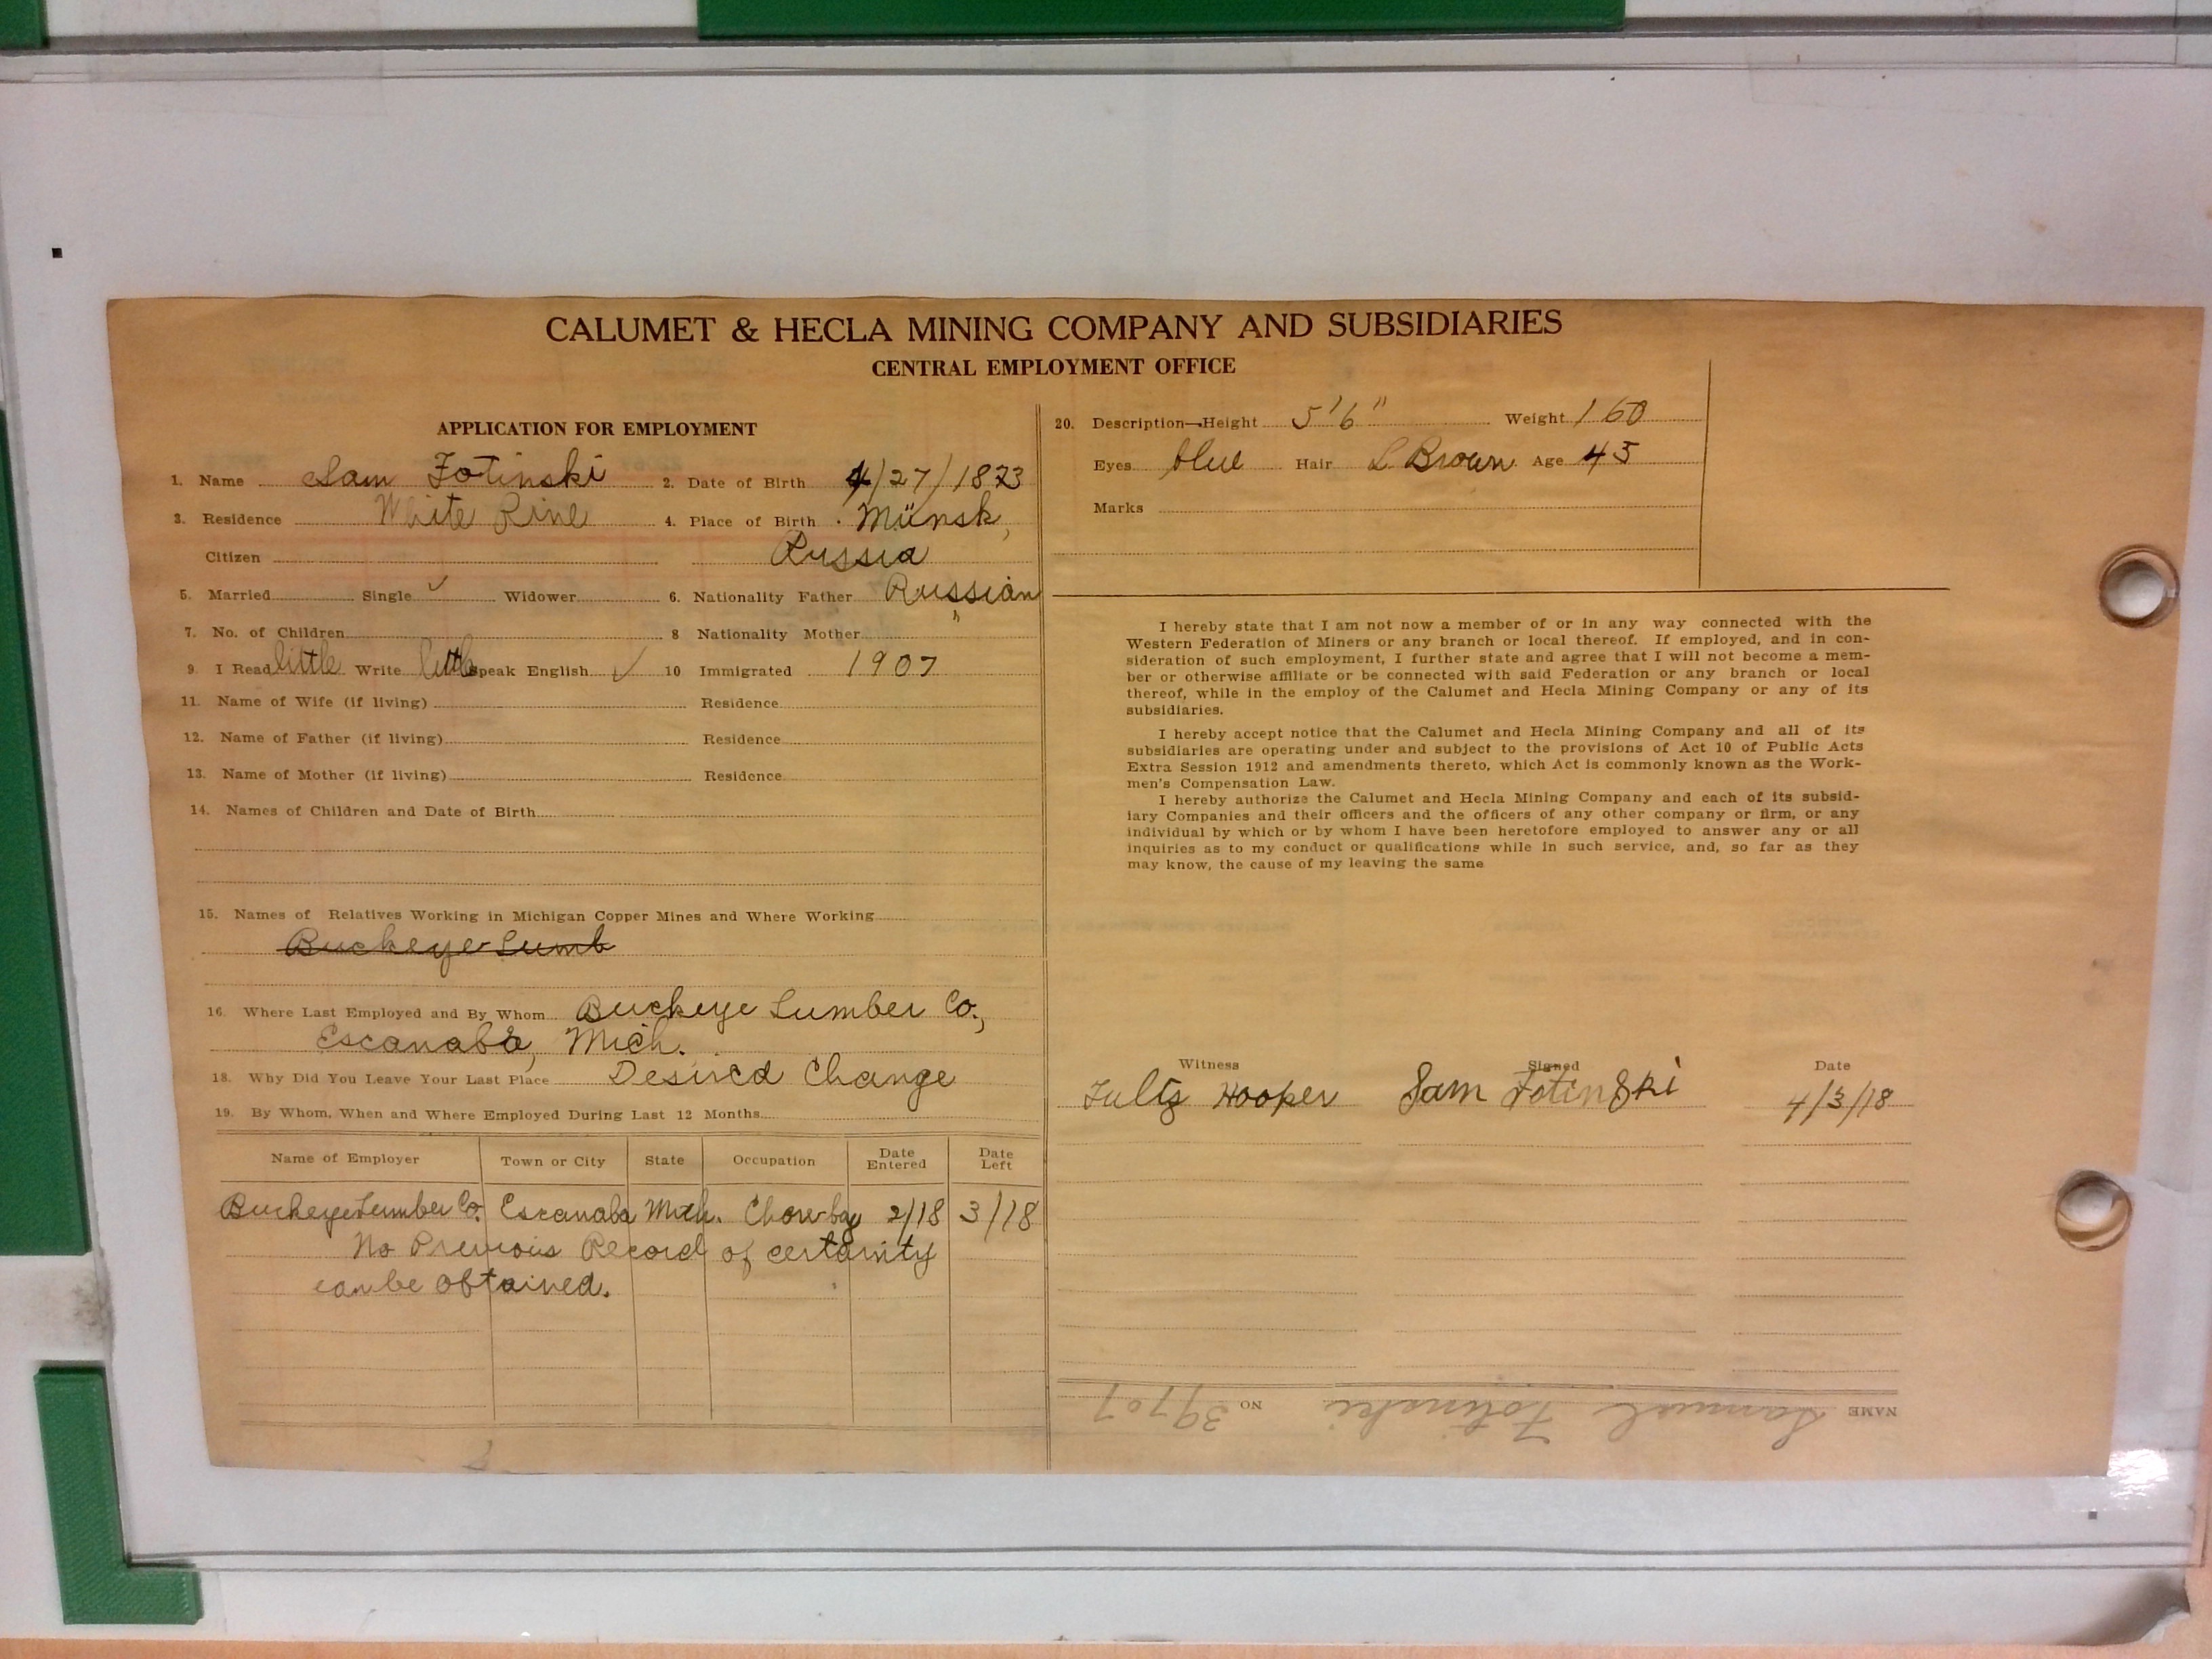 CALUMET & HECLA MINING COMPANY AND SUBSIDIARIES
CENTRAL EMPLOYMENT OFFICE
APPLICATION FOR EMPLOYMENT
1. Name Sam Fotinski 2. Date of Birth 4/27/1873
3. Residence White Pine 4. Place of Birth Münsk,
Citizen Russia
5. Married Single ✓ Widower 6. Nationality Father Russian
7. No. of Children 8 Nationality Mother "
9. I Read little Write little Speak English ✓ 10 Immigrated 1907
11. Name of Wife (if living) Residence
12. Name of Father (if living) Residence
13. Name of Mother (if living) Residence
14. Names of Children and Date of Birth
15. Names of Relatives Working in Michigan Copper Mines and Where Working
Buckeye Lumb
16. Where Last Employed and By Whom Buckeye Lumber Co.,
Escanaba, Mich.
18. Why Did You Leave Your Last Place Desired Change
19. By Whom, When and Where Employed During Last 12 Months
Name of Employer Town or City State Occupation Date Entered Date Left
Buckeye Lumber Co. Escanaba Mich. Chore-boy 2/18 3/18
No Previous Record of certainity
can be obtained.
20. Description—Height 5'6" Weight 160
Eyes blue Hair L Brown Age 45
Marks
I hereby state that I am not now a member of or in any way connected with the
Western Federation of Miners or any branch or local thereof. If employed, and in con-
sideration of such employment, I further state and agree that I will not become a mem-
ber or otherwise affiliate or be connected with said Federation or any branch or local
thereof, while in the employ of the Calumet and Hecla Mining Company or any of its
subsidiaries.
I hereby accept notice that the Calumet and Hecla Mining Company and all of its
subsidiaries are operating under and subject to the provisions of Act 10 of Public Acts
Extra Session 1912 and amendments thereto, which Act is commonly known as the Work-
men's Compensation Law.
I hereby authorize the Calumet and Hecla Mining Company and each of its subsid-
iary Companies and their officers and the officers of any other company or firm, or any
individual by which or by whom I have been heretofore employed to answer any or all
inquiries as to my conduct or qualifications while in such service, and, so far as they
may know, the cause of my leaving the same
Witness Signed Date
Hooper Sam Fotinski 4/3/18
NAME Samuel Fotinski NO 39707